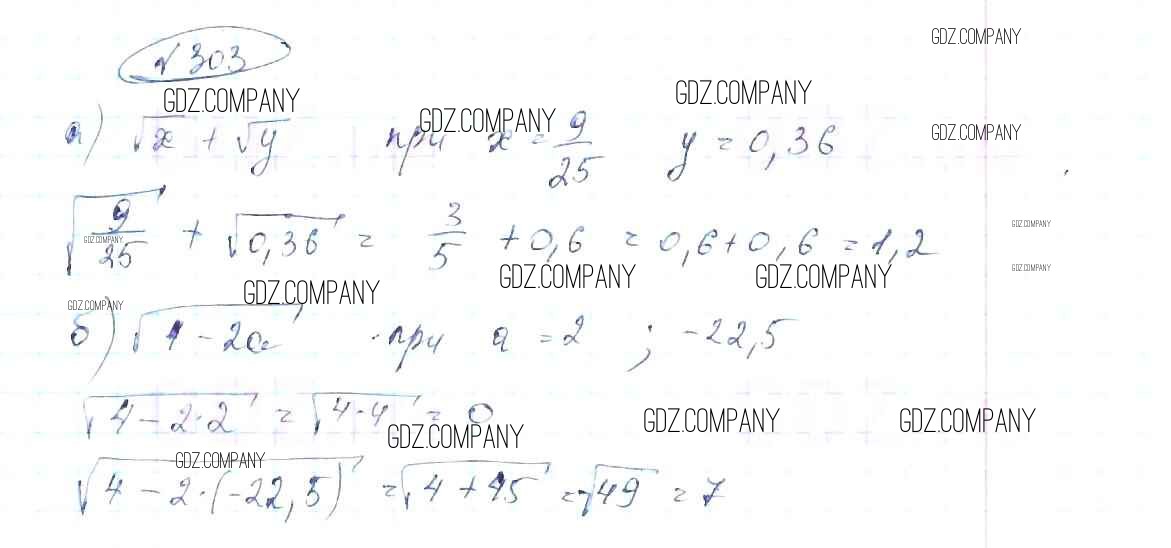 √303
GDZ.COMPANY
GDZ.COMPANY
GDZ.COMPANY
GDZ.COMPANY
а) √x + √y при x = 9/25 y = 0,36
GDZ.COMPANY
√9/25 + √0,36 = 3/5 + 0,6 = 0,6 + 0,6 = 1,2
GDZ.COMPANY
GDZ.COMPANY
GDZ.COMPANY
GDZ.COMPANY
GDZ.COMPANY
GDZ.COMPANY
GDZ.COMPANY
б) √4 - 2a при a = 2 ; -22,5
√4 - 2·2 = √4·4 = 0
GDZ.COMPANY
GDZ.COMPANY
GDZ.COMPANY
GDZ.COMPANY
√4 - 2·(-22,5) = √4 + 45 = √49 = 7